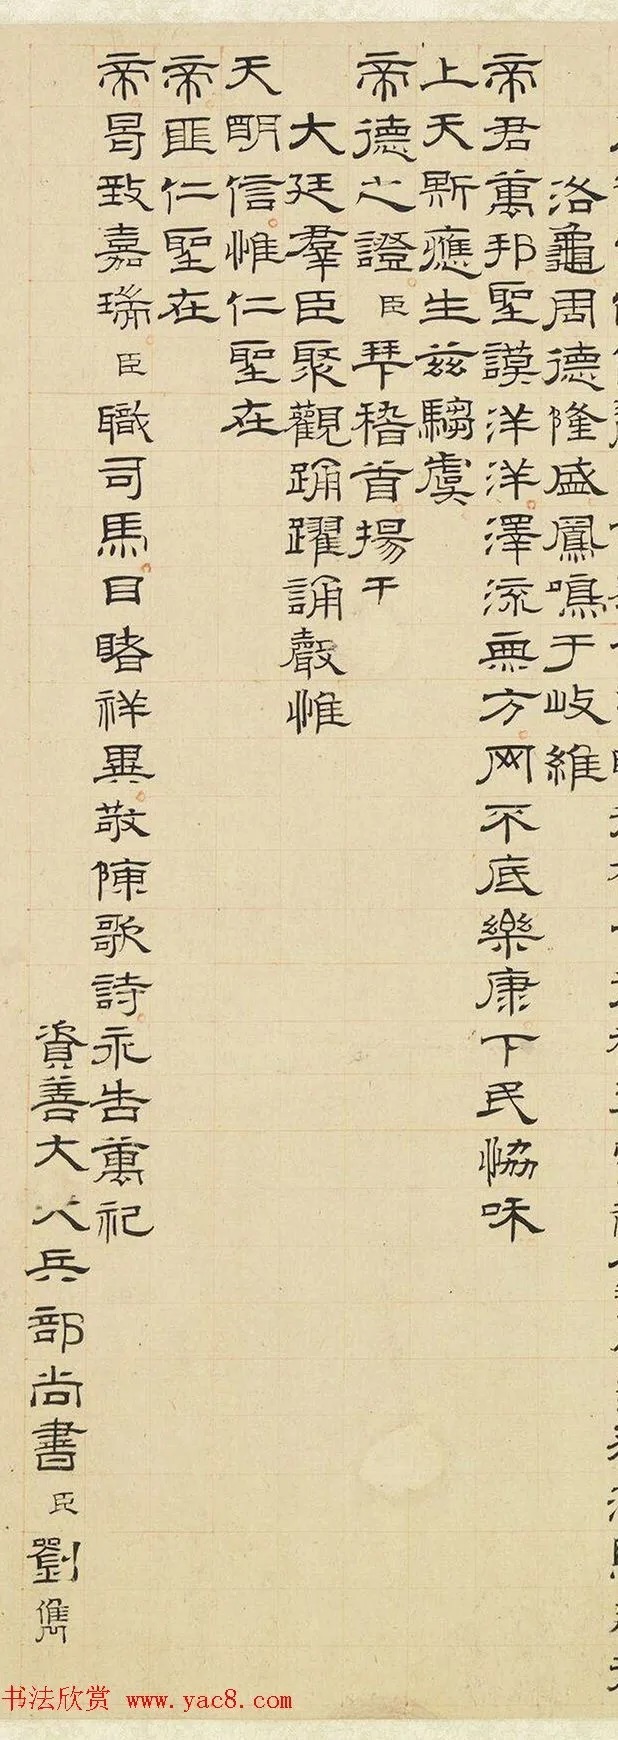 洛龜周德隆盛鳳鳴于岐維
帝君萬邦聖謨洋洋澤流無方罔不底樂康下民恊咊
上天斯應生兹騶虞
帝德之證臣 稽首揚于
大廷羣臣聚觀踊躍誦聲惟
天明信惟仁聖在
帝匪仁聖在
帝曷致嘉瑞臣職司馬目睹祥異敬陳歌詩永告萬祀
資善大人兵部尚書臣劉儁
书法欣赏 www.yac8.com